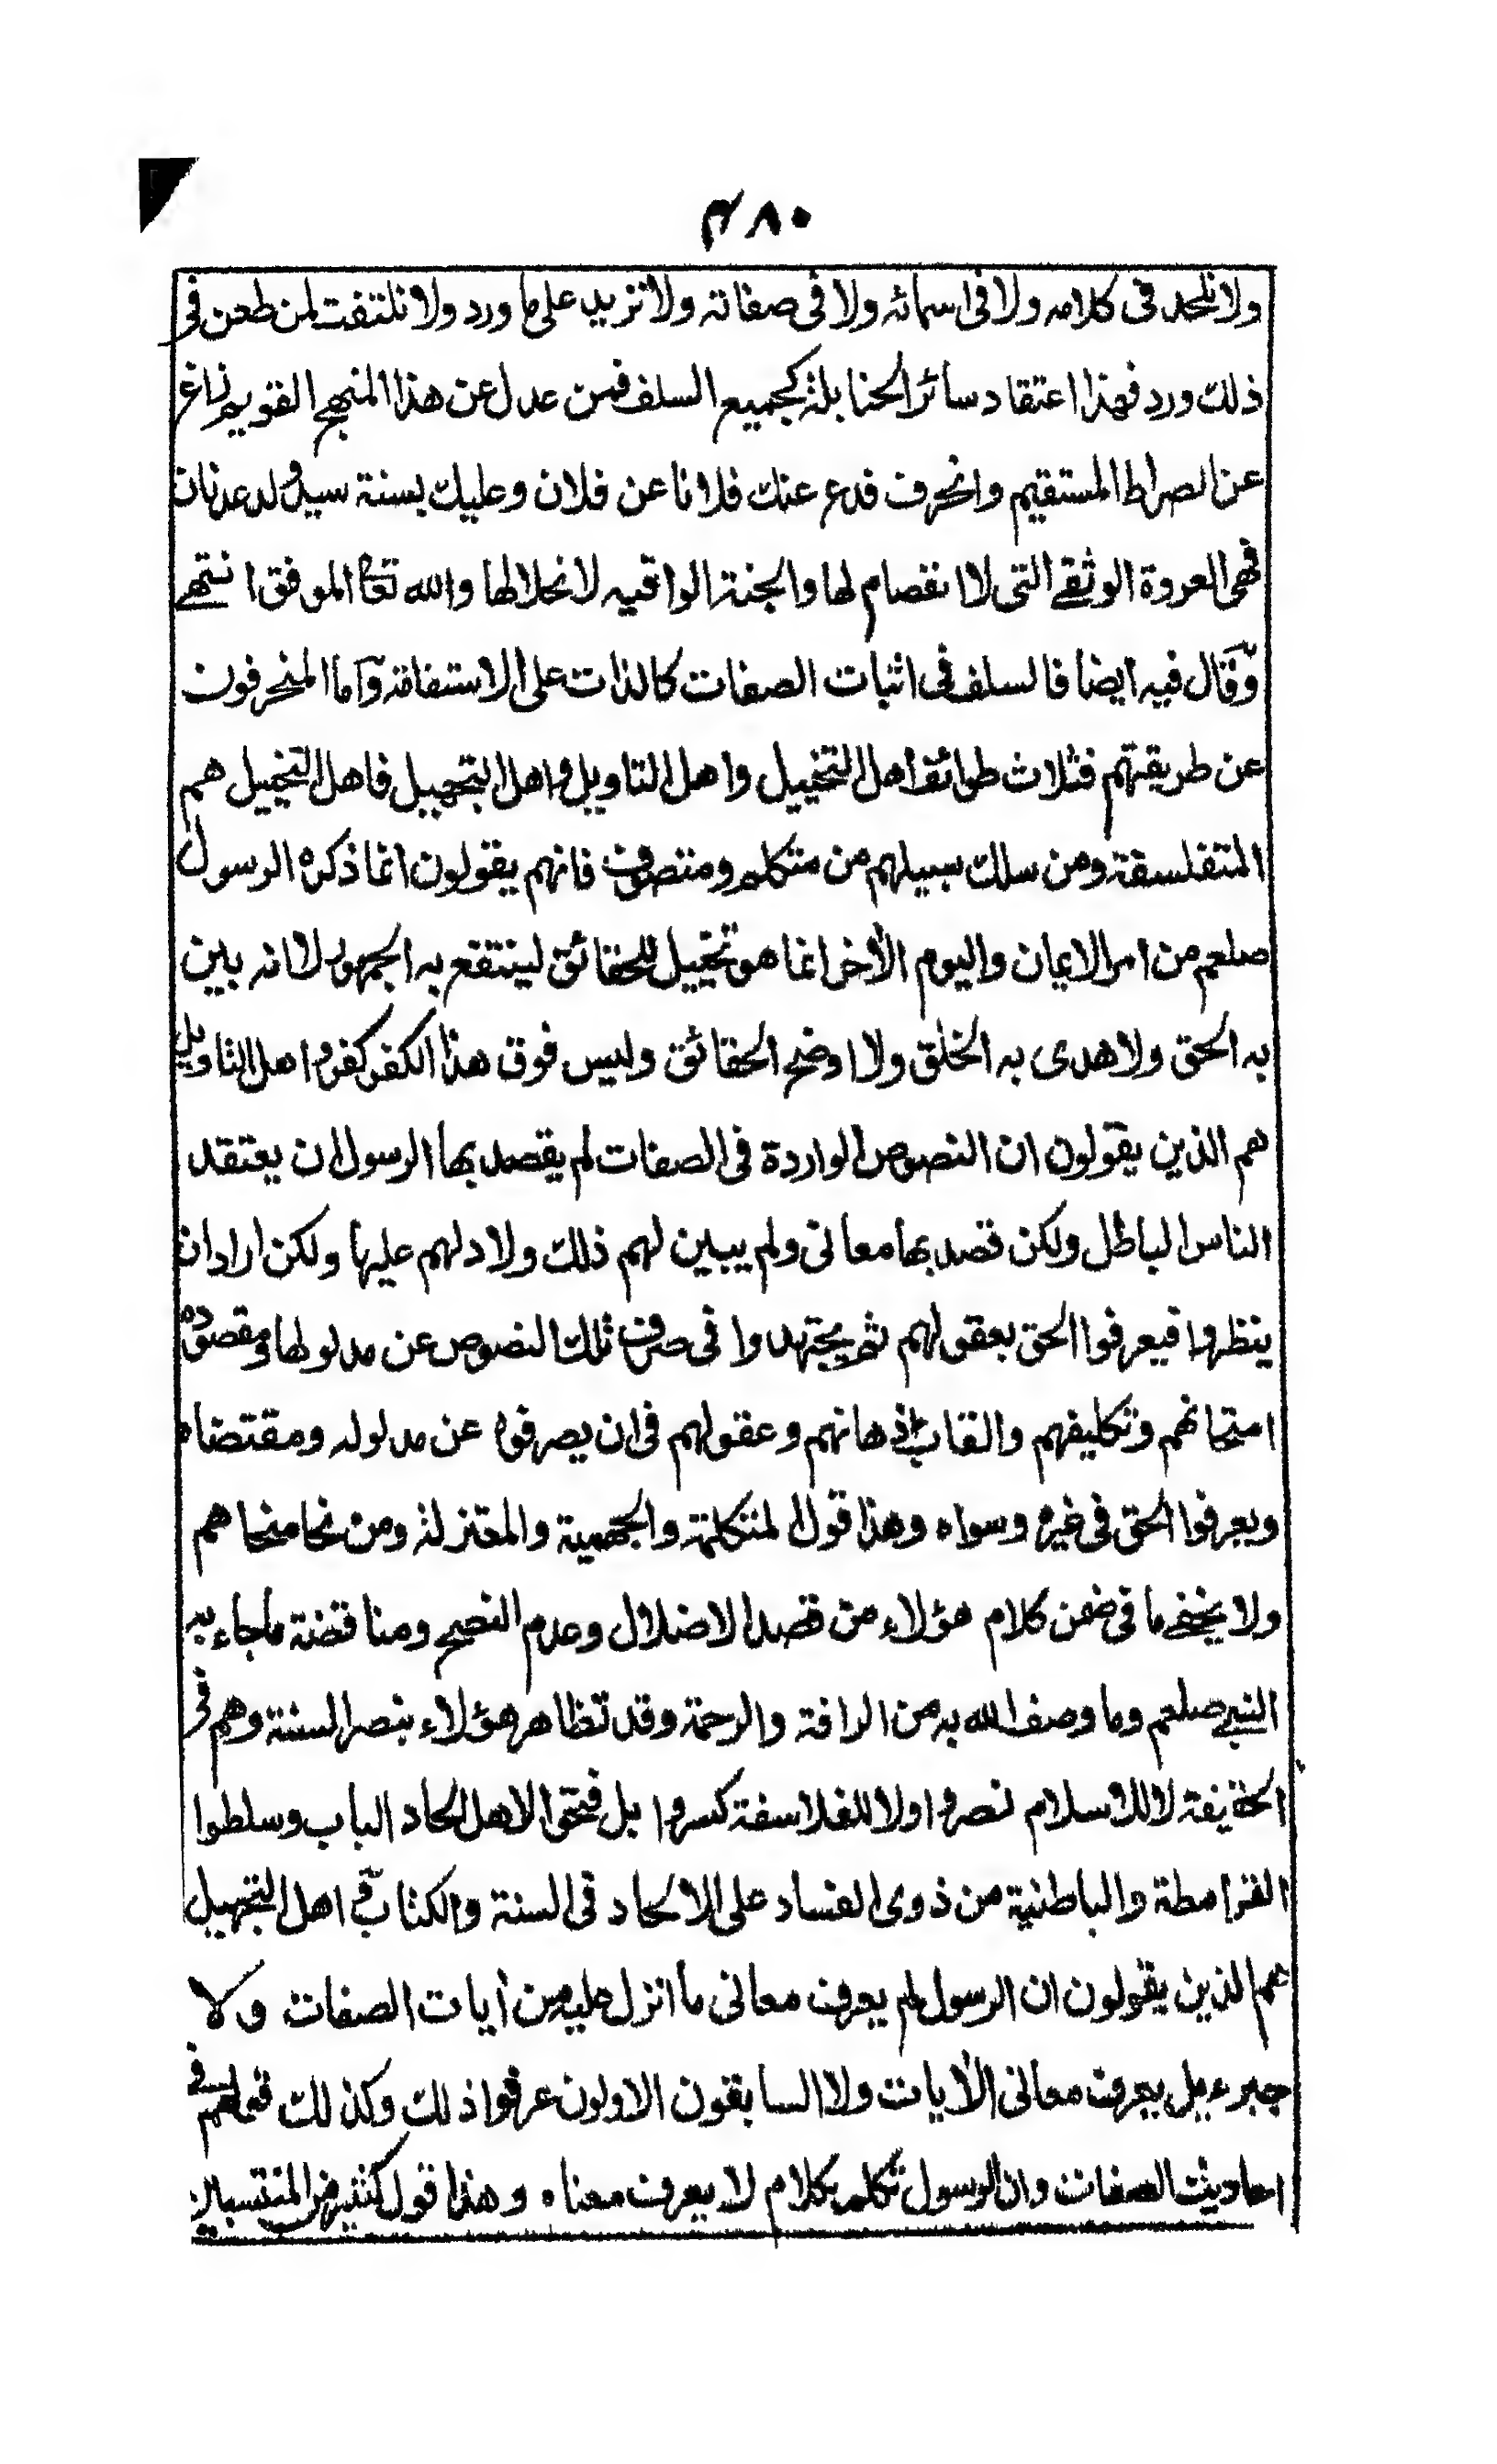 ۴۸۰
ولا نلحد فى كلامه ولا فى اسمائه ولا فى صفاته ولا نزيد على ما ورد ولا نلتفت لمن طعن فى
ذلك ورد فهذا اعتقاد سائر الحنابلة كجميع السلف فمن عدل عن هذا المنهج القويم زاغ
عن الصراط المستقيم وانحرف فدع عنك فلانا عن فلان وعليك بسنة سيد ولد عدنان
فهى العروة الوثقى التى لا انفصام لها والجنة الواقيه لا نحلالها والله تعالى الموفق انتهى
وقال فيه ايضا فالسلف فى اثبات الصفات كالذات على الاستقامة واما المنحرفون
عن طريقتهم فثلاث طوائف اهل التخييل واهل التاويل واهل التجهيل فاهل التخييل هم
المتفلسفة ومن سلك سبيلهم من متكلم ومتصوف فانهم يقولون انما ذكره الرسول
صلعم من امر الايمان واليوم الأخر انما هو تخييل للحقائق لينتفع به الجمهور لا انه بين
به الحق ولا هدى به الخلق ولا اوضح الحقائق وليس فوق هذا الكفر كفر واهل التاويل
هم الذين يقولون ان النصوص الواردة فى الصفات لم يقصد بها الرسول ان يعتقد
الناس الباطل ولكن قصد بها معانى ولم يبين لهم ذلك ولا دلهم عليها ولكن اراد ان
ينظروا فيعرفوا الحق بعقولهم ثم يجتهدوا فى صرف تلك النصوص عن مدلولها ومقصوده
امتحانهم وتكليفهم واتعاب اذهانهم وعقولهم فى ان يصرفوا عن مدلوله ومقتضاه
ويعرفوا الحق فى غيره وسواه وهذا قول المتكلمة والجهمية والمعتزلة ومن نحا منحاهم
ولا يخفى ما فى ضمن كلام هؤلاء من قصد الاضلال وعدم النصح ومناقضة ما جاء به
النبى صلعم وما وصف الله به من الرافة والرحمة وقد تظاهر هؤلاء بنصر السنة وهم فى
الحقيقة لا للاسلام نصروا ولا للفلاسفة كسروا بل فتحوا لاهل الحاد الباب وسلطوا
القرامطة والباطنية من ذوى الفساد على الالحاد فى السنة والكتاب و اهل التجهيل
هم الذين يقولون ان الرسول لم يعرف معانى ما انزل عليه من أيات الصفات ولا
جبرءيل يعرف معانى الأيات ولا السابقون الاولون عرفوا ذلك وكذلك قولهم فى
احاديث الصفات وان الرسول تكلم بكلام لا يعرف معناه وهذا قول كثير من المنتسبين